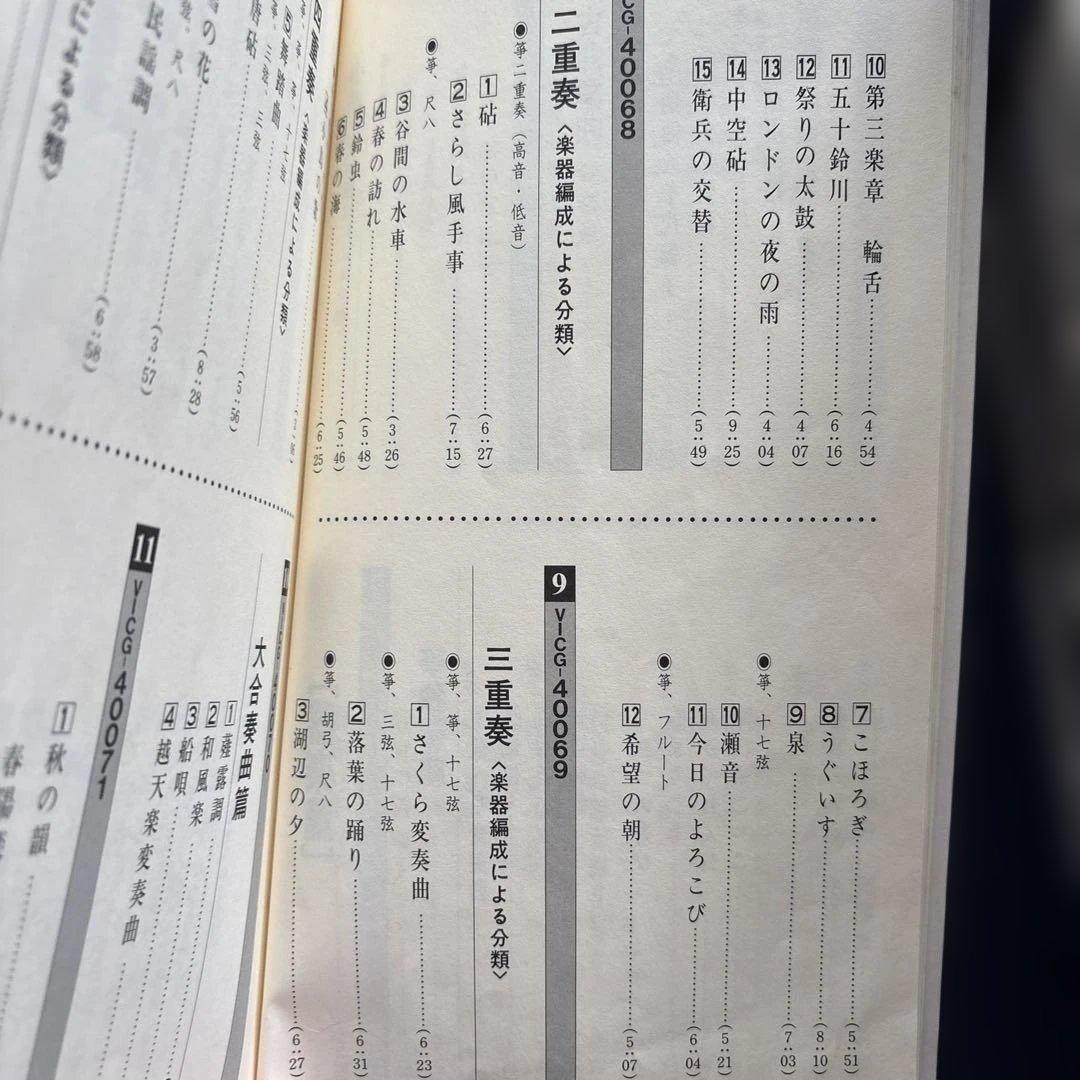 10 第三楽章 輪舌 (4:54)
11 五十鈴川 (6:16)
12 祭りの太鼓 (4:07)
13 ロンドンの夜の雨 (4:04)
14 中空砧 (9:25)
15 衛兵の交替 (5:49)
CG-40068
二重奏〈楽器編成による分類〉
●箏二重奏(高音・低音)
1 砧 (6:27)
2 さらし風手事 (7:15)
●箏、尺八
3 谷間の水車 (3:26)
4 春の訪れ (5:48)
5 鈴虫 (5:46)
6 春の海 (6:25)
7 こほろぎ (5:51)
8 うぐいす (8:10)
9 泉 (7:03)
●箏、十七弦
10 瀬音 (5:21)
11 今日のよろこび (6:04)
●箏、フルート
12 希望の朝 (5:07)
9 VICG-40069
三重奏〈楽器編成による分類〉
●箏、箏、十七弦
1 さくら変奏曲 (6:23)
●箏、三弦、十七弦
2 落葉の踊り (6:31)
●箏、胡弓、尺八
3 湖辺の夕 (6:27)
四重奏〈楽器編成による分類〉
5 舞踏曲
(5:56)
の花 (8:28)
尺八
民謡調 (3:57)
による分類〉
(6:58)
VICG-40070
大合奏曲篇
1 薤露調
2 和風楽
3 船唄
4 越天楽変奏曲
11 VICG-40071
1 秋の韻